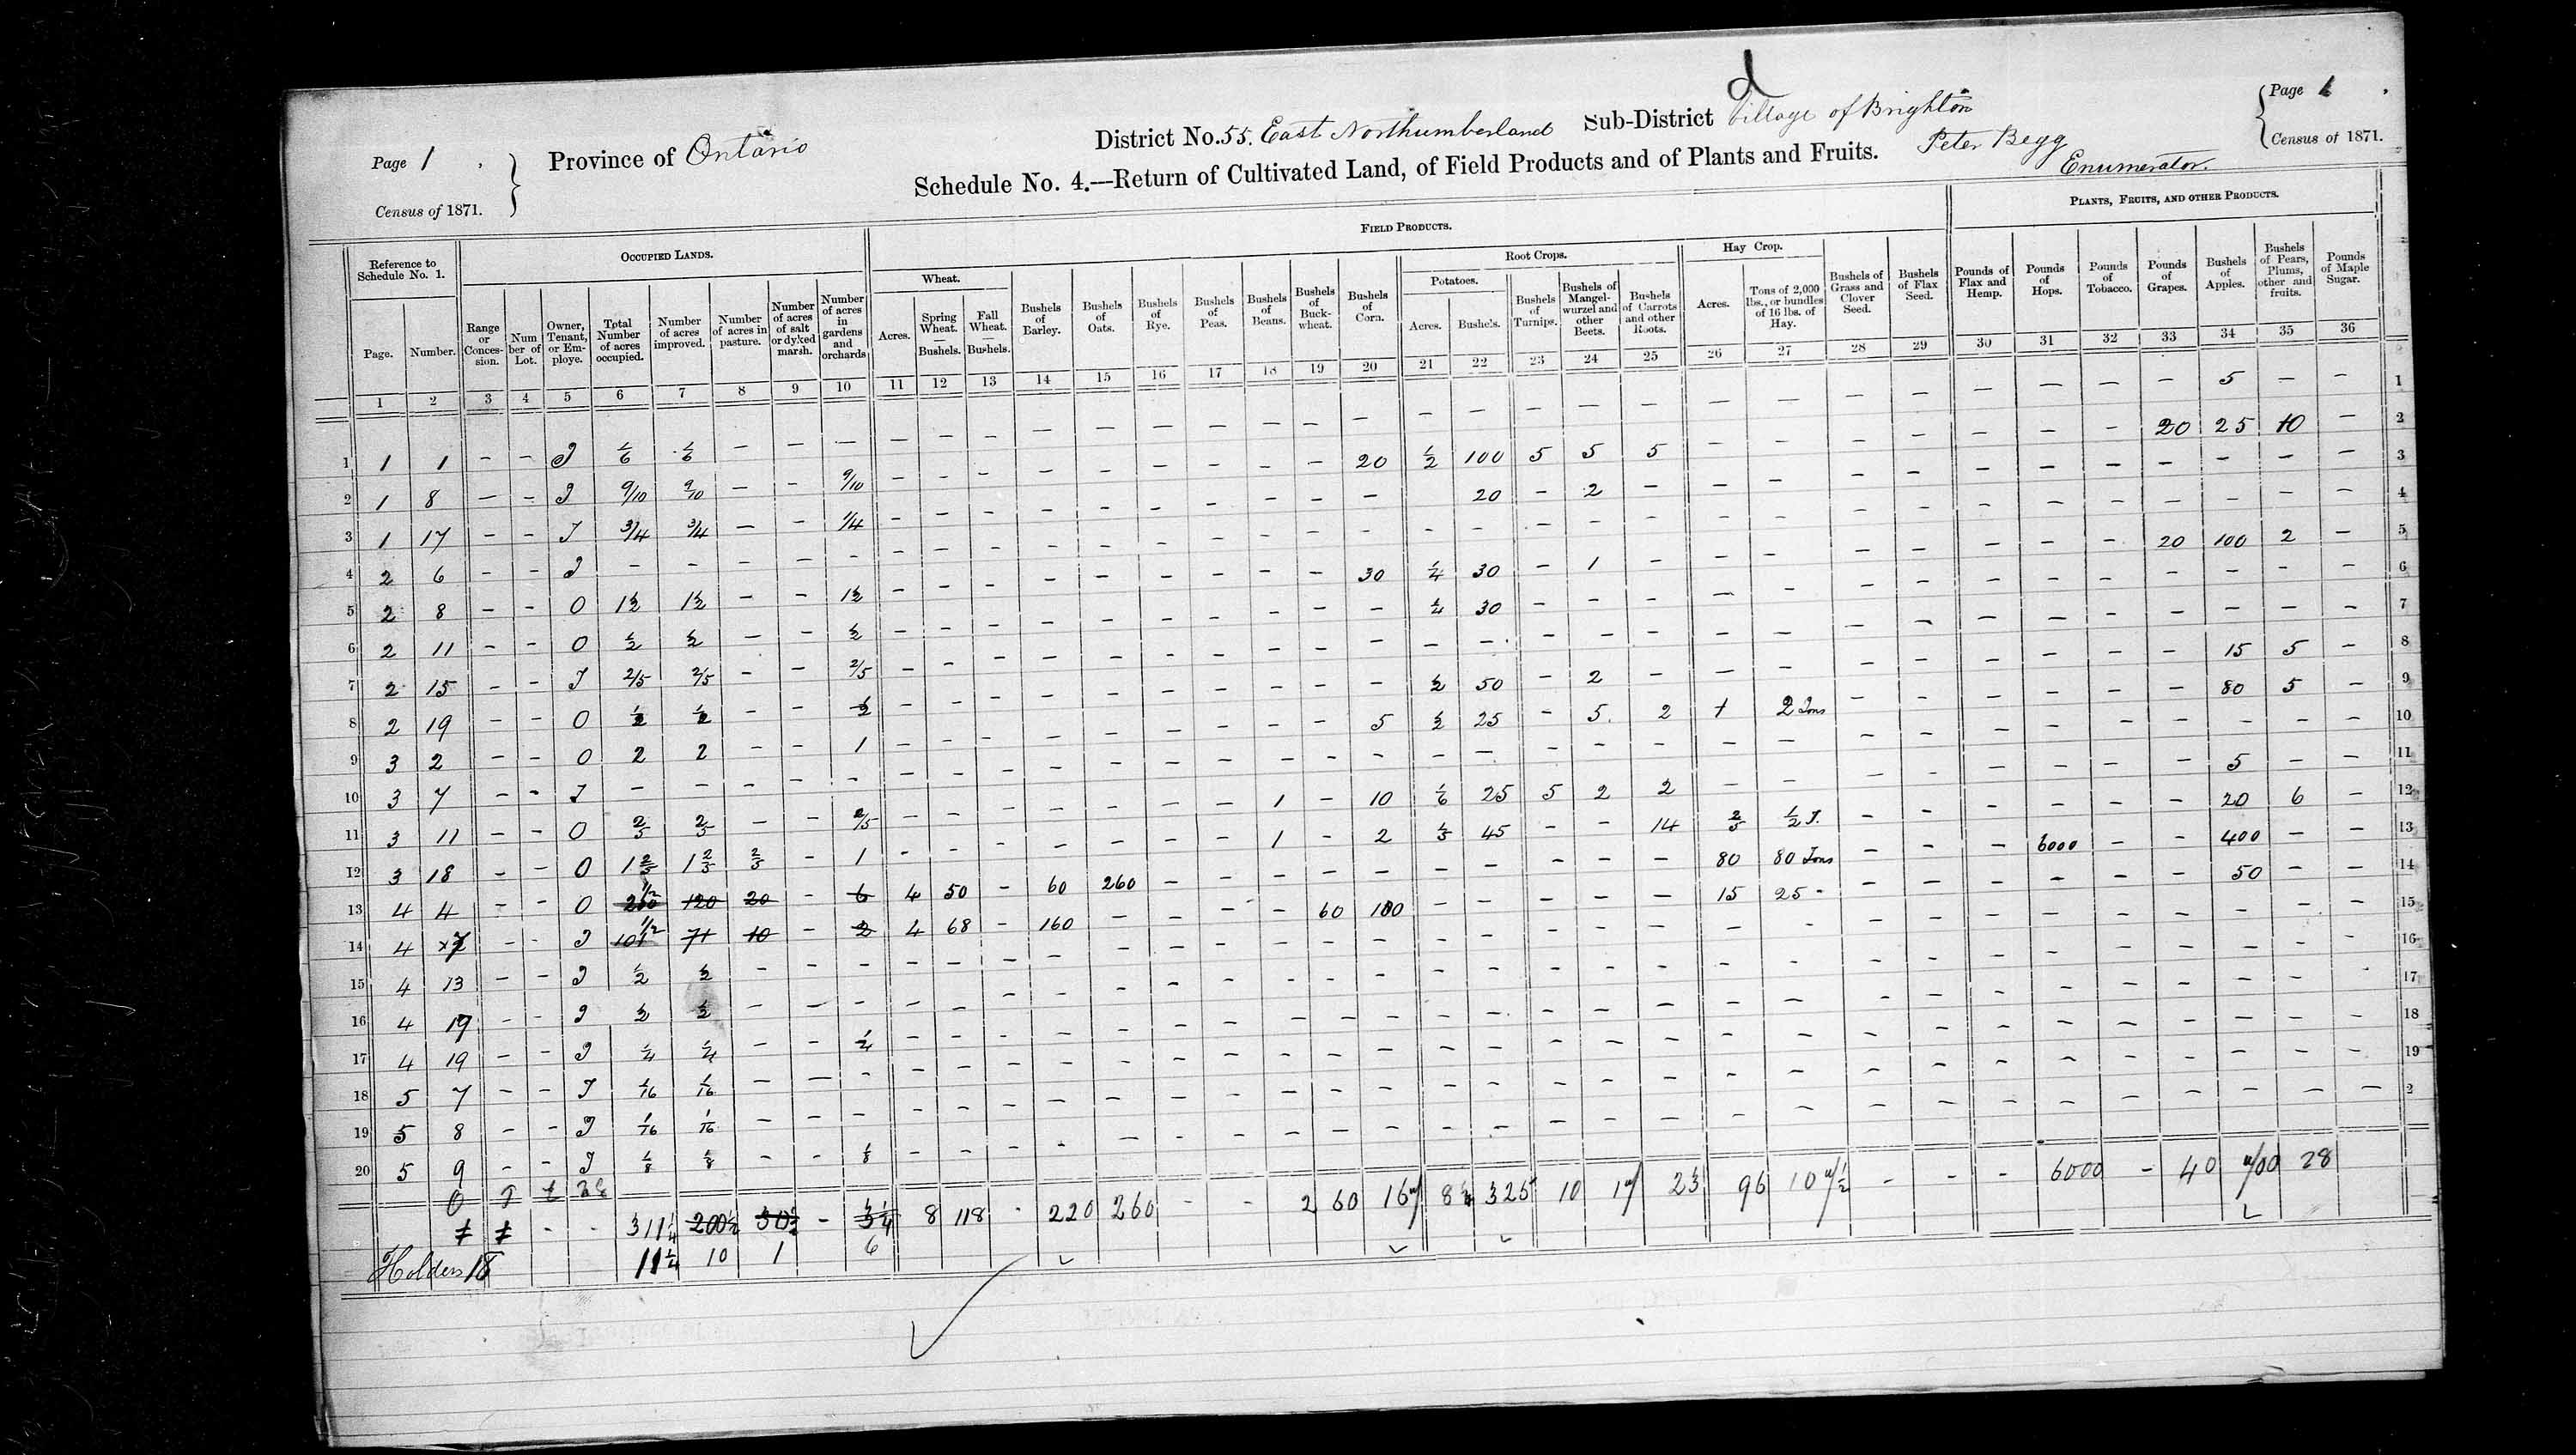 d
Page 1
Census of 1871.
Province of Ontario
District No. 55. East Northumberland Sub-District Village of Brighton
Peter Begg
Enumerator.
Page 1
Census of 1871.
Schedule No. 4.—Return of Cultivated Land, of Field Products and of Plants and Fruits.
Reference to Schedule No. 1. OCCUPIED LANDS. FIELD PRODUCTS. PLANTS, FRUITS, AND OTHER PRODUCTS.
Wheat. Root Crops. Potatoes. Hay Crop.
Page. Number. Range or Conces-sion. Num ber of Lot. Owner, Tenant, or Em-ploye. Total Number of acres occupied. Number of acres improved. Number of acres in pasture. Number of acres of salt or dyked marsh. Number of acres in gardens and orchards Acres. Spring Wheat. — Bushels. Fall Wheat. — Bushels. Bushels of Barley. Bushels of Oats. Bushels of Rye. Bushels of Peas. Bushels of Beans. Bushels of Buck-wheat. Bushels of Corn. Acres. Bushels. Bushels of Turnips. Bushels of Mangel-wurzel and other Beets. Bushels of Carrots and other Roots. Acres. Tons of 2,000 lbs., or bundles of 16 lbs. of Hay. Bushels of Grass and Clover Seed. Bushels of Flax Seed. Pounds of Flax and Hemp. Pounds of Hops. Pounds of Tobacco. Pounds of Grapes. Bushels of Apples. Bushels of Pears, Plums, other and fruits. Pounds of Maple Sugar.
1 2 3 4 5 6 7 8 9 10 11 12 13 14 15 16 17 18 19 20 21 22 23 24 25 26 27 28 29 30 31 32 33 34 35 36
1 1 1 - - T 1/6 1/6 - - - - - - - - - - - - - - - - - - - - - - - - - - 5 - - 1
2 1 8 - - T 9/10 9/10 - - 9/10 - - - - - - - - - 20 1/2 100 5 5 5 - - - - - - - 20 25 10 - 2
3 1 17 - - T 3/4 3/4 - - 1/4 - - - - - - - - - - 20 - 2 - - - - - - - - - - - - 3
4 2 6 - - T - - - - - - - - - - - - - - - - - - - - - - - - - - - - - - - 4
5 2 8 - - O 1 1/2 1 1/2 - - 1 1/2 - - - - - - - - - 30 1/4 30 - 1 - - - - - - - - 20 100 2 - 5
6 2 11 - - O 1/2 1/2 - - 1/2 - - - - - - - - - - 1/4 30 - - - - - - - - - - - - - - 6
7 2 15 - - T 2/5 2/5 - - 2/5 - - - - - - - - - - - - - - - - - - - - - - - - - - 7
8 2 19 - - O 1/2 1/2 - - 1/2 - - - - - - - - - - 1/2 50 - 2 - - - - - - - - - 15 5 - 8
9 3 2 - - O 2 2 - - 1 - - - - - - - - - 5 1/2 25 - 5 2 1 2 Tons - - - - - - 80 5 - 9
10 3 7 - - T - - - - - - - - - - - - - - - - - - - - - - - - - - - - - - - 10
11 3 11 - - O 2/5 2/5 - - 2/5 - - - - - - - 1 - 10 1/6 25 5 2 2 - - - - - - - - 5 - - 11
12 3 18 - - O 1 2/5 1 2/5 2/5 - 1 - - - - - - - 1 - 2 1/5 45 - - 14 2/5 1/2 T. - - - - - - 20 6 - 12
13 4 4 - - O 1/2 250 120 20 - 6 4 50 - 60 260 - - - - - - - - - - 80 80 Tons - - - 6000 - - 400 - - 13
14 4 7 - - T 1/2 101 71 10 - 2 4 68 - 160 - - - - 60 100 - - - - - 15 25 - - - - - - 50 - - 14
15 4 13 - - T 1/2 1/2 - - - - - - - - - - - - - - - - - - - - - - - - - - - - - 15
16 4 19 - - T 1/2 1/2 - - - - - - - - - - - - - - - - - - - - - - - - - - - - - 16
17 4 19 - - T 1/4 1/4 - - 1/4 - - - - - - - - - - - - - - - - - - - - - - - - - - 17
18 5 7 - - T 1/16 1/16 - - - - - - - - - - - - - - - - - - - - - - - - - - - - - 18
19 5 8 - - T 1/16 1/16 - - - - - - - - - - - - - - - - - - - - - - - - - - - - - 19
20 5 9 - - T 1/8 1/8 - - 1/8 - - - - - - - - - - - - - - - - - - - - - - - - - - 2
O T E
311 1/4 200 1/2 30 1/2 - 8 118 - 220 260 - - 2 60 325 10 23 96 - - - 6000 - 40 28
Holders 18 11 1/4 10 1 6